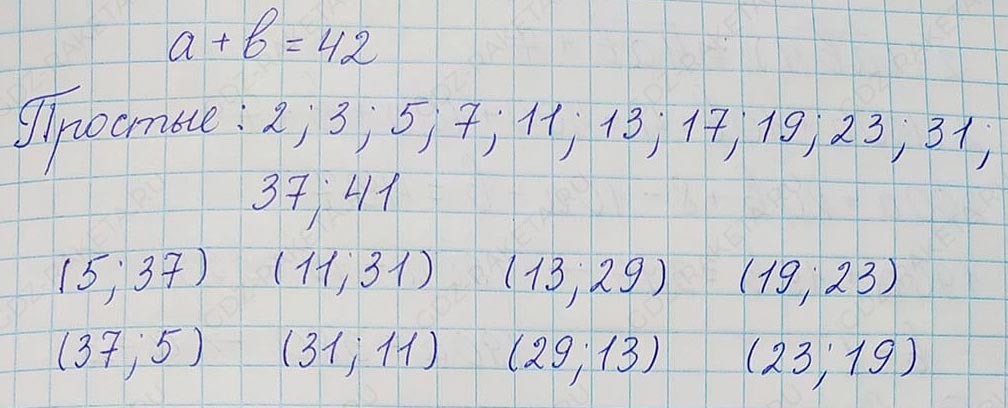 a + b = 42
Простые: 2; 3; 5; 7; 11; 13; 17; 19; 23; 31;
37; 41
(5; 37) (11; 31) (13; 29) (19; 23)
(37; 5) (31; 11) (29; 13) (23; 19)